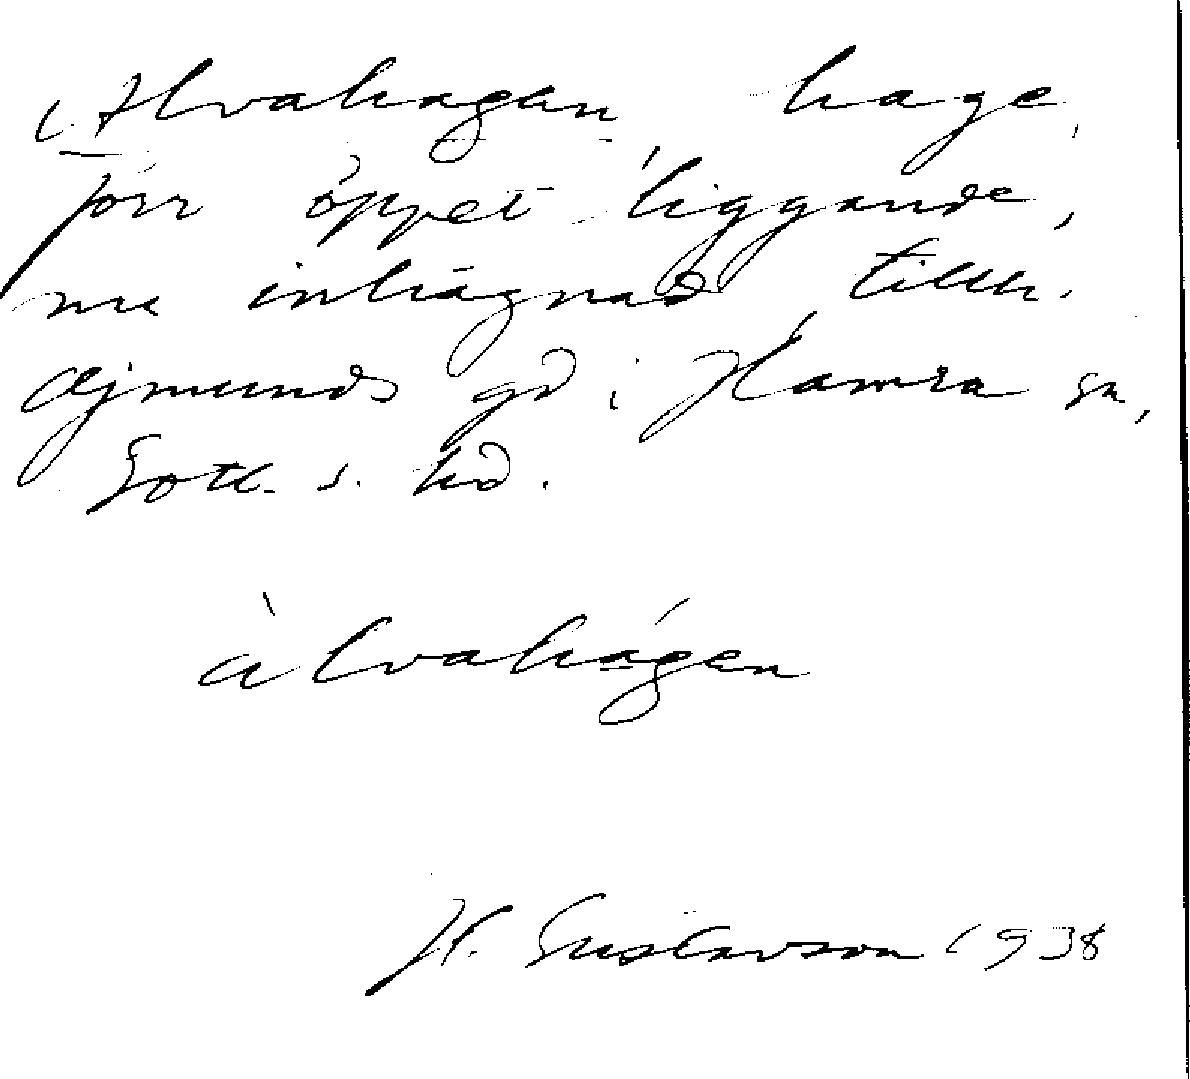 Alvahagen, hage,
förr öppet liggande,
nu inhägnad, tillh.
Ejmunds gd i Hamra sn,
Gotl. s. hd.
àlvahá̱gen
H. Gustavson 1938